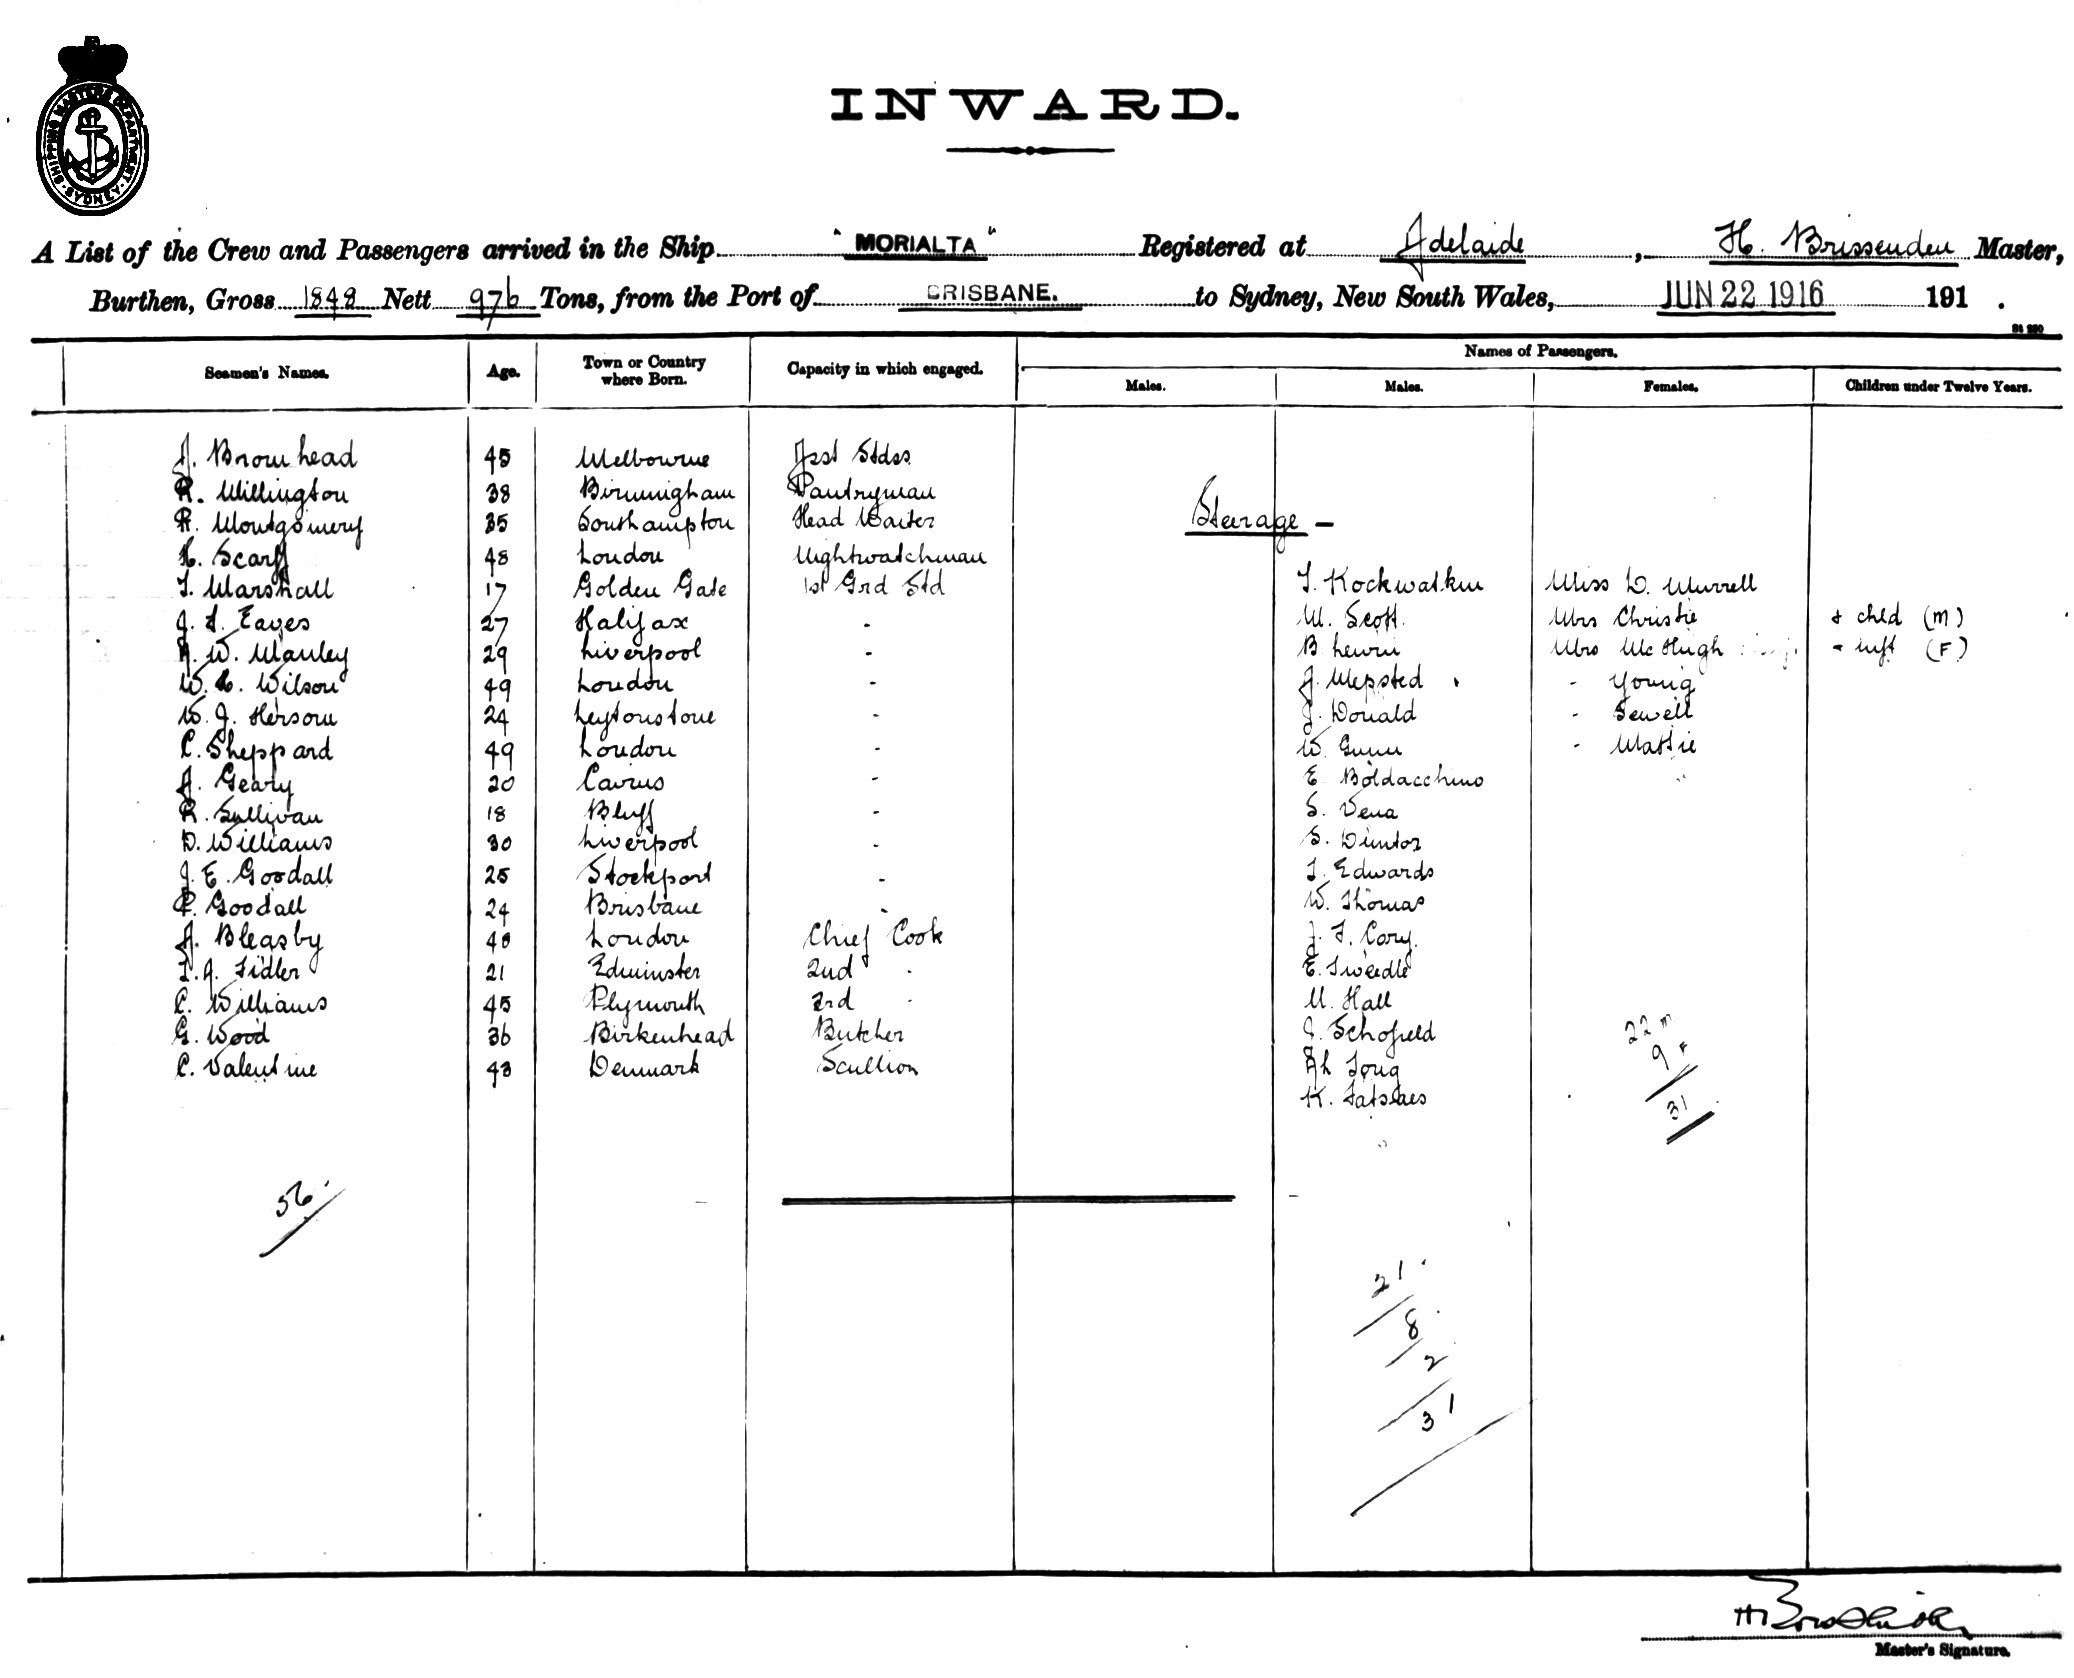 SHIPPING MASTERS DEPARTMENT. SYDNEY
INWARD.
A List of the Crew and Passengers arrived in the Ship "MORIALTA" Registered at Adelaide, H. Brissenden Master,
Burthen, Gross 1848 Nett 976 Tons, from the Port of BRISBANE. to Sydney, New South Wales, JUN 22 1916 191 .
Names of Passengers.
Seamen's Names. Age. Town or Country where Born. Capacity in which engaged. Males. Males. Females. Children under Twelve Years.
J. Bromhead 45 Melbourne Stdss
R. Willington 38 Birmingham Pantryman
R. Montgomery 35 Southampton Head Waiter
Steerage -
H. Scarff 48 London Nightwatchman
T. Marshall 17 Golden Gate 1st Grd Std T. Miss D. Murrell
J. T. Eaves 27 Halifax - W. Scott. Mrs Christie + chld (M)
A. W. Manley 29 Liverpool - B Lewin Mrs McHugh - inft (F)
W. H. Wilson 49 London - J. Mepsted - Young
W. J. Hersom 24 Leytonstone - J. Donald - Sewell
C. Sheppard 49 London - W. Gunn - Mattie
A. Geary 20 Cairns - E. Boldacchino
R. Sullivan 18 Bluff - S. Vena
D. Williams 30 Liverpool - S. Duntor
J. E. Goodall 25 Stockport - T. Edwards
P. Goodall 24 Brisbane - W. Thomas
A. Bleasby 40 London Chief Cook J. T. Cory.
T. J. Fidler 21 Edminster 2nd - E. Tweedle
C. Williams 45 Plymouth 3rd - M. Hall
G. Wood 36 Birkenhead Butcher J. Schofield 22 M
C. Valentine 43 Denmark Scullion Ah Tong 9 F
K. Fatseaes 31
56
21
8
2
31
Master's Signature.